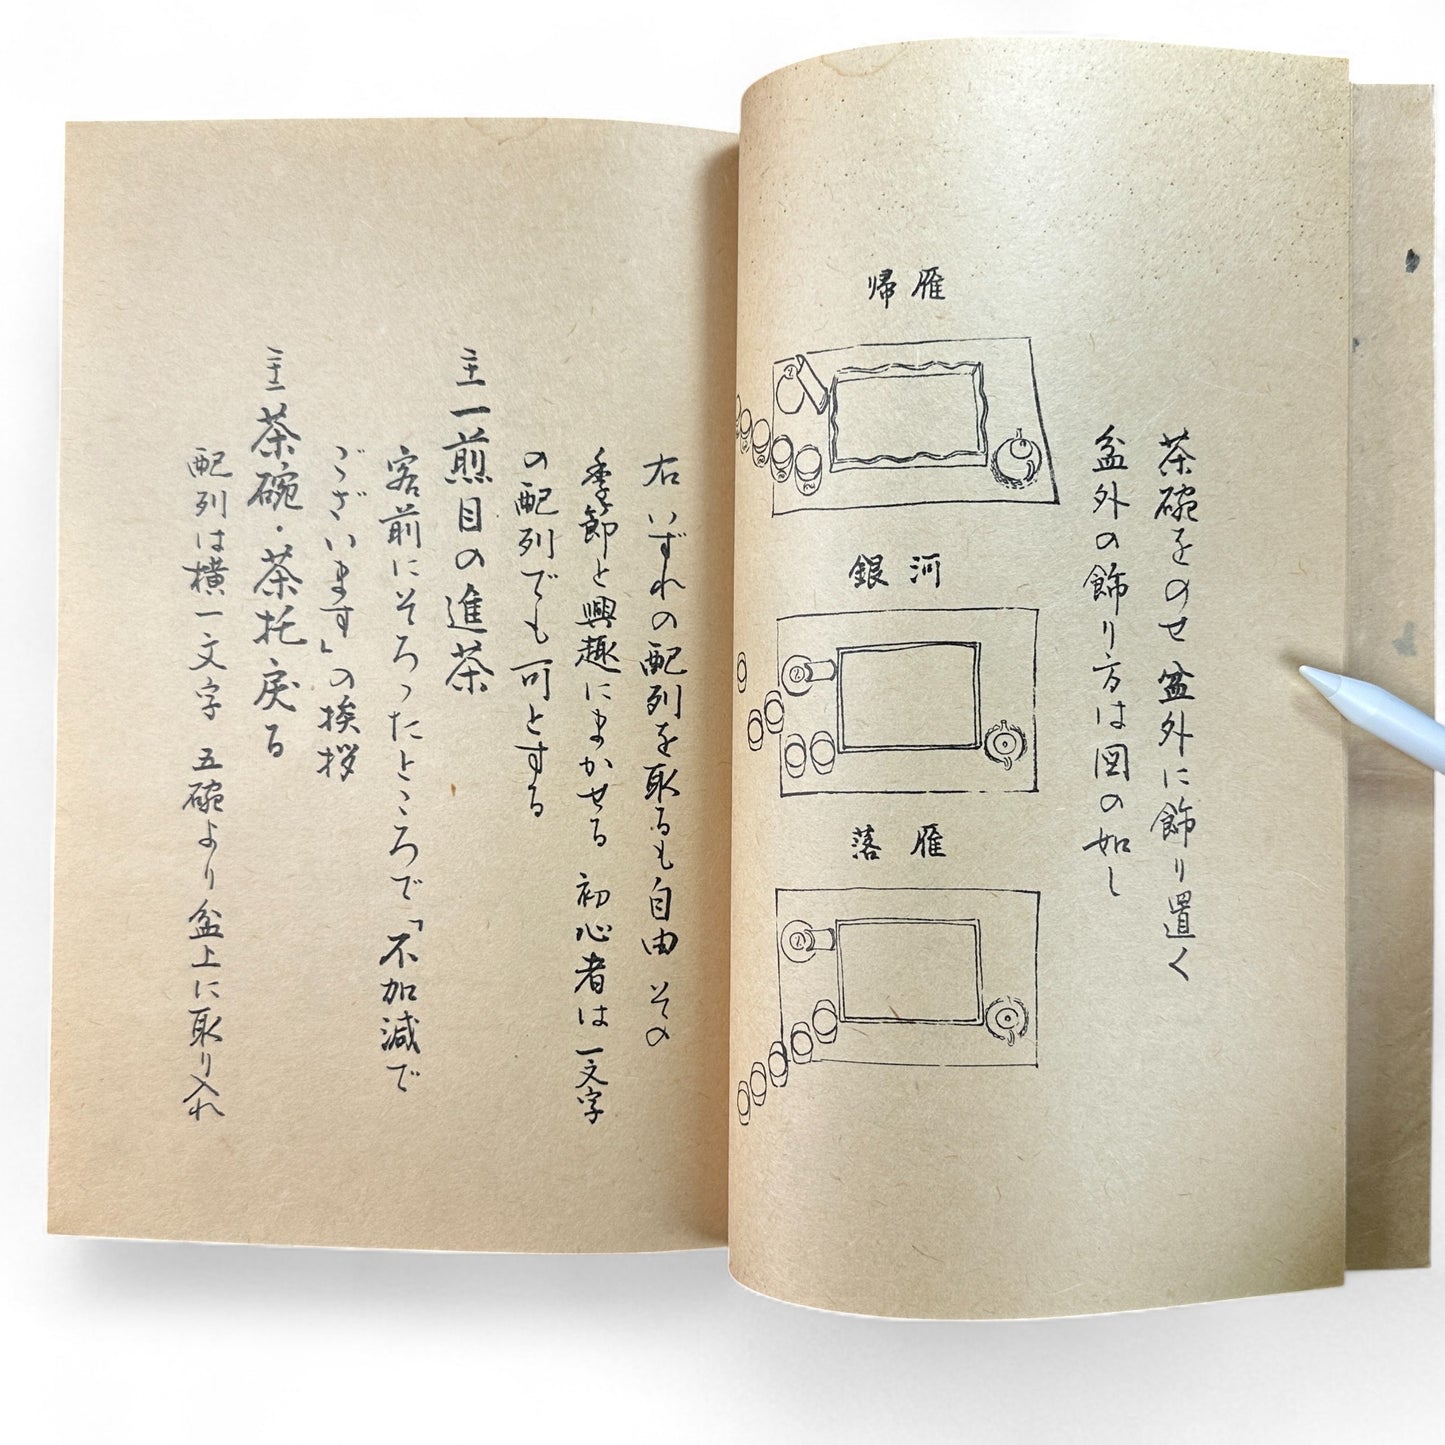 茶碗をのせ 盆外に飾り置く
盆外の飾り方は図の如し
帰雁
銀河
落雁
右 いずれの配列を取るも自由 その
季節と興趣にまかせる 初心者は一文字
の配列でも可とする
主 一煎目の進茶
客前にそろったところで「不加減で
ございます」の挨拶
主 茶碗・茶托戻る
配列は横一文字 五碗より盆上に取り入れ